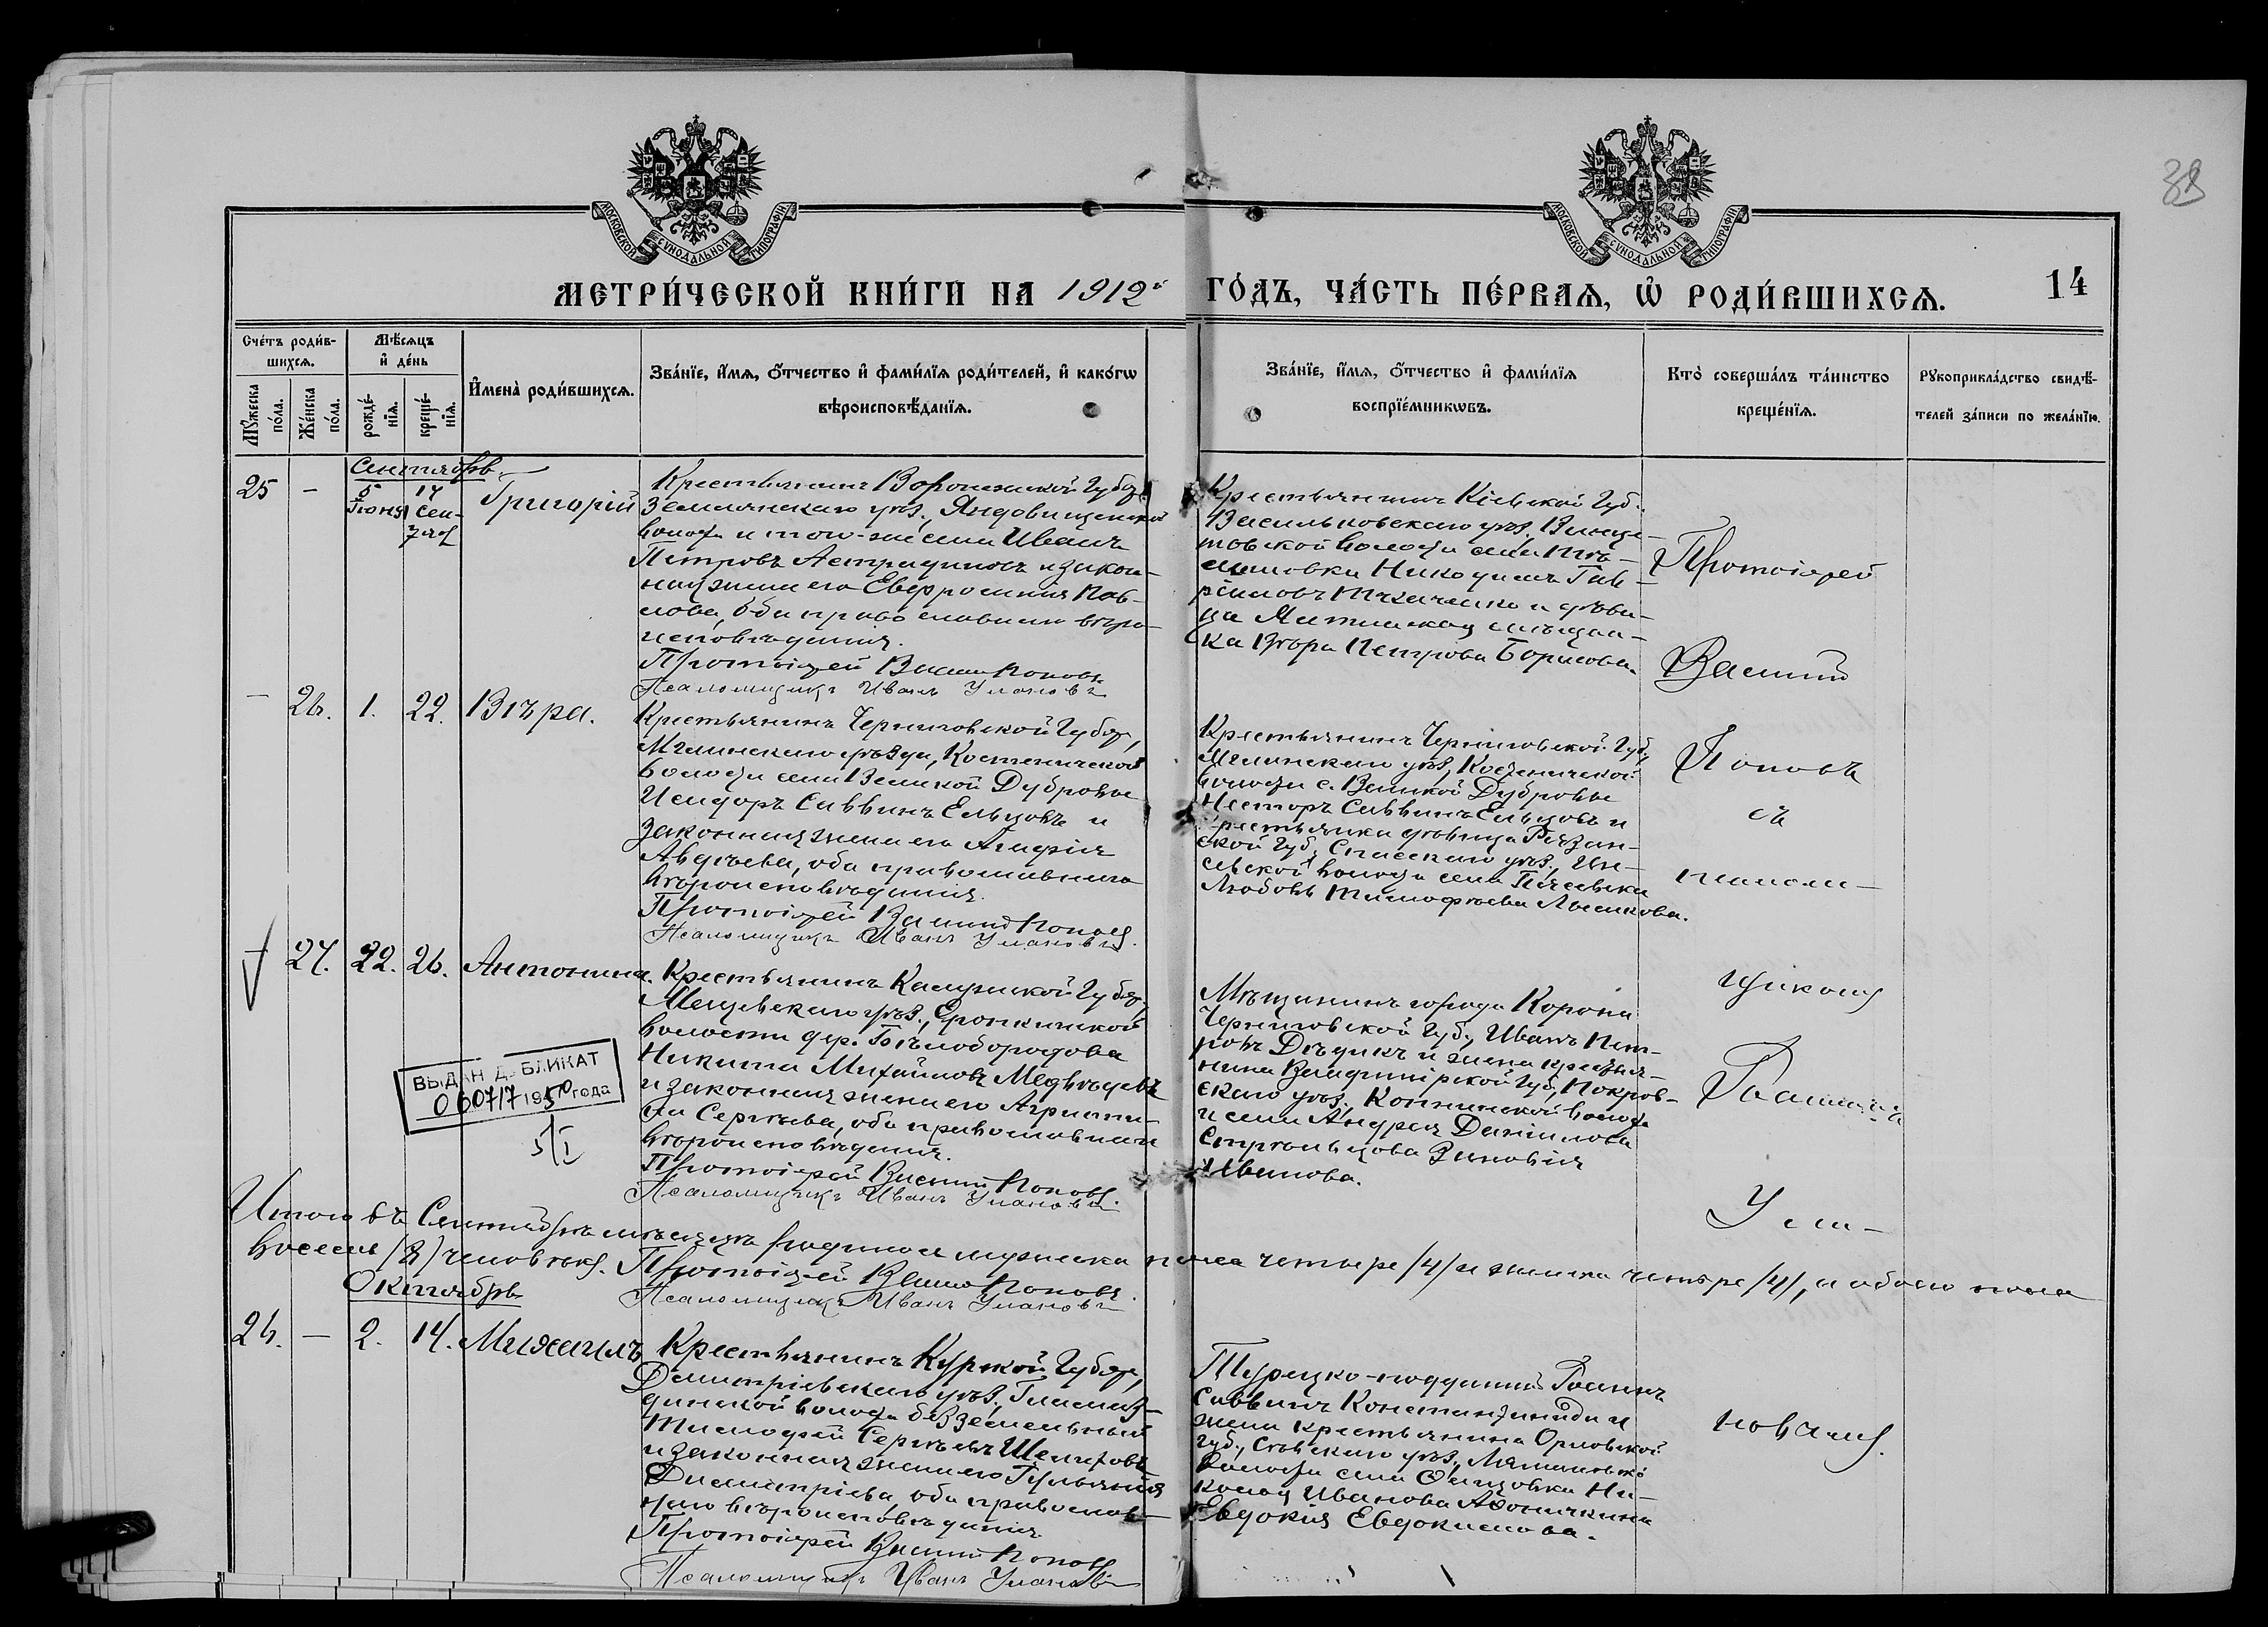 МОСКОВСКОЙ СУНОДАЛЬНОЙ ТИПОГРАФІИ
МОСКОВСКОЙ СУНОДАЛЬНОЙ ТИПОГРАФІИ
38
МЕТРИ́ЧЕСКОЙ КНИ́ГИ НА 1912й ГО́ДЪ, ЧА́СТЬ ПЕ́РВАЯ, Ѡ҆ РОДИ́ВШИХСѦ.
14
Сче́тъ роди́в-
шихсѧ.
Мѣ́сѧцъ
и҆ де́нь
Мꙋ́жеска
по́ла.
Же́нска
по́ла.
рожде́-
нїѧ.
креще́-
нїѧ.
И҆мена̀ роди́вшихсѧ.
Зва́нїе, и҆́мѧ, ѻ҆́тчество и҆ фами́лїѧ роди́телей, и҆ како́гѡ
вѣроисповѣ́данїѧ.
Зва́нїе, и҆́мѧ, ѻ҆́тчество и҆ фами́лїѧ
воспрїе́мникѡвъ.
Кто̀ соверша́лъ та́инство
креще́нїѧ.
Рꙋкоприкла́дство свидѣ́-
телей за́писи по жела́нїю.
Сентябрь
25 - 5 Іюня 17 Сен- Григорій
Крестьянинъ Воронежской Губер.
Землянскаго уѣз., Яндовищенской
волости и того-же села Иванъ
Петровъ и закон-
ная жена его Евфросинія Пав-
лова, оба православнаго вѣро-
исповѣданія.
Протоіерей Василій Поповъ
Псаломщикъ Иванъ Улановъ
Крестьянинъ Кіевской Губ.
Васильковскаго уѣз.
товской волости села
Никодимъ Гав-
ріиловъ Ткаченко и дѣви-
ца мѣщан-
ка Вѣра Петрова Борисова.
Протоіерей
Василій
- 26. 1. 22. Вѣра.
Крестьянинъ Черниговской Губер.,
Мглинскаго уѣзда, Костеничской
волости села Великой Дубровы
Исидоръ Саввинъ Ельцовъ и
законная жена его Агафія
Авдѣева, оба православнаго
вѣроисповѣданія.
Протоіерей Василій Поповъ
Псаломщикъ Иванъ Улановъ
Крестьянинъ Черниговской Губ.
Мглинскаго уѣз., Костеничской
волости с. Великой Дубровы
Несторъ Саввинъ Ельцовъ и
крестьянка дѣвица Рязан-
ской Губ., Спасскаго уѣз.,
волости села
Любовь Тимофѣева
Поповъ
съ
псалом-
- 27. 22. 26. Антонина.
Крестьянинъ Калужской Губер.
Мещовскаго уѣз.,
волости дер. Бѣлобородова
Никита Михайловъ Медвѣдевъ
и законная жена его Агриппи-
на Сергѣева, оба православнаго
вѣроисповѣданія.
Протоіерей Василій Поповъ.
Псаломщикъ Иванъ Улановъ
Мѣщанинъ города Коропа
Черниговской Губ., Иванъ Пет-
ровъ Дѣдикъ и жена крестья-
нина Владимірской Губ., Покров-
скаго уѣз., волости
и села Андрея Даніилова
Стрѣльцова Зиновія
Иванова.
щикомъ
Іоанномъ
Ула-
ВЫДАН ДУБЛИКАТ
060717 1950 года
5/I
Итого въ Сентябрѣ мѣсяцѣ родилось мужеска пола четыре /4/ и женска четыре /4/, а обоего пола
восемь /8/ человѣкъ. Протоіерей Василій Поповъ.
Псаломщикъ Иванъ Улановъ
Октябрь
26. - 2. 14. Михаилъ
Крестьянинъ Курской Губер.,
Дмитріевскаго уѣз.,
волости безземельный
Тимофей Сергѣевъ Шелиховъ
и законная жена его
Димитріева, оба православ-
наго вѣроисповѣданія
Протоіерей Василій Поповъ
Псаломщикъ Иванъ Улановъ
Турецко-подданный
Саввичъ Константиниди и
жена крестьянина Орловской
губ., Сѣвскаго уѣз.,
волости села Ни-
колая Иванова
Евдокія Евдокимова.
новымъ.